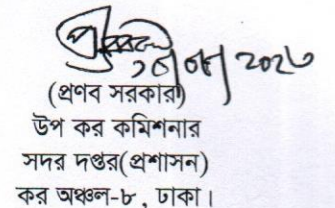 (প্রণব সরকার)
উপ কর কমিশনার
সদর দপ্তর(প্রশাসন)
কর অঞ্চল-৮, ঢাকা।